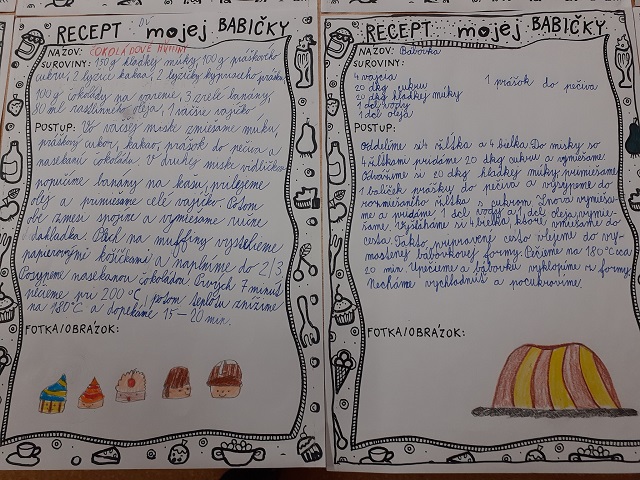 RECEPT OD mojej BABIČKY
NÁZOV: ČOKOLÁDOVÉ MUFFINY
SUROVINY: 150 g hladkej múky, 100 g práškového
cukru, 2 lyžice kakaa, 2 lyžičky kypriaceho prášku
100 g čokolády na varenie, 3 zrelé banány,
80 ml rastlinného oleja, 1 väčšie vajíčko
POSTUP: Vo väčšej miske zmiešame múku,
práškový cukor, kakao, prášok do pečiva a
nasekanú čokoládu. V druhej miske vidličkou
popučíme banány na kašu, prilejeme
olej a primiešame celé vajíčko. Potom
obe zmesi spojíme a vymiešame ručne
dohladka. Plech na muffiny vystelieme
papierovými košíčkami a naplníme do 2/3.
Posypeme nasekanou čokoládou. Prvých 7 minút
pečieme pri 200 °C, potom teplotu znížime
na 180°C a dopekáme 15-20 min.
FOTKA/OBRÁZOK:
RECEPT mojej BABIČKY
NÁZOV: Bábovka
SUROVINY:
4 vajcia
20 dkg cukru 1 prášok do pečiva
20 dkg hladkej múky
1 dcl vody
1 dcl oleja
POSTUP:
Oddelíme si 4 žĺtka a 4 bielka. Do misky so
4 žĺtkami pridáme 20 dkg cukru a vymiešame.
Odvážime si 20 dkg hladkej múky, primiešame
1 balíček prášku do pečiva a vsypeme do
rozmiešaného žĺtka s cukrom. Znova vymieša-
me a pridáme 1 dcl vody a 1 dcl oleja, vymie-
šame. Vyšľaháme si 4 bielka, ktoré vmiešame do
cesta. Takto pripravené cesto vlejeme do vy-
mastenej bábovkovej formy. Pečieme na 180°C cca
20 min. Upečieme a bábovku vyklopíme z formy.
Necháme vychladnúť a pocukrujeme.
FOTKA/OBRÁZOK: